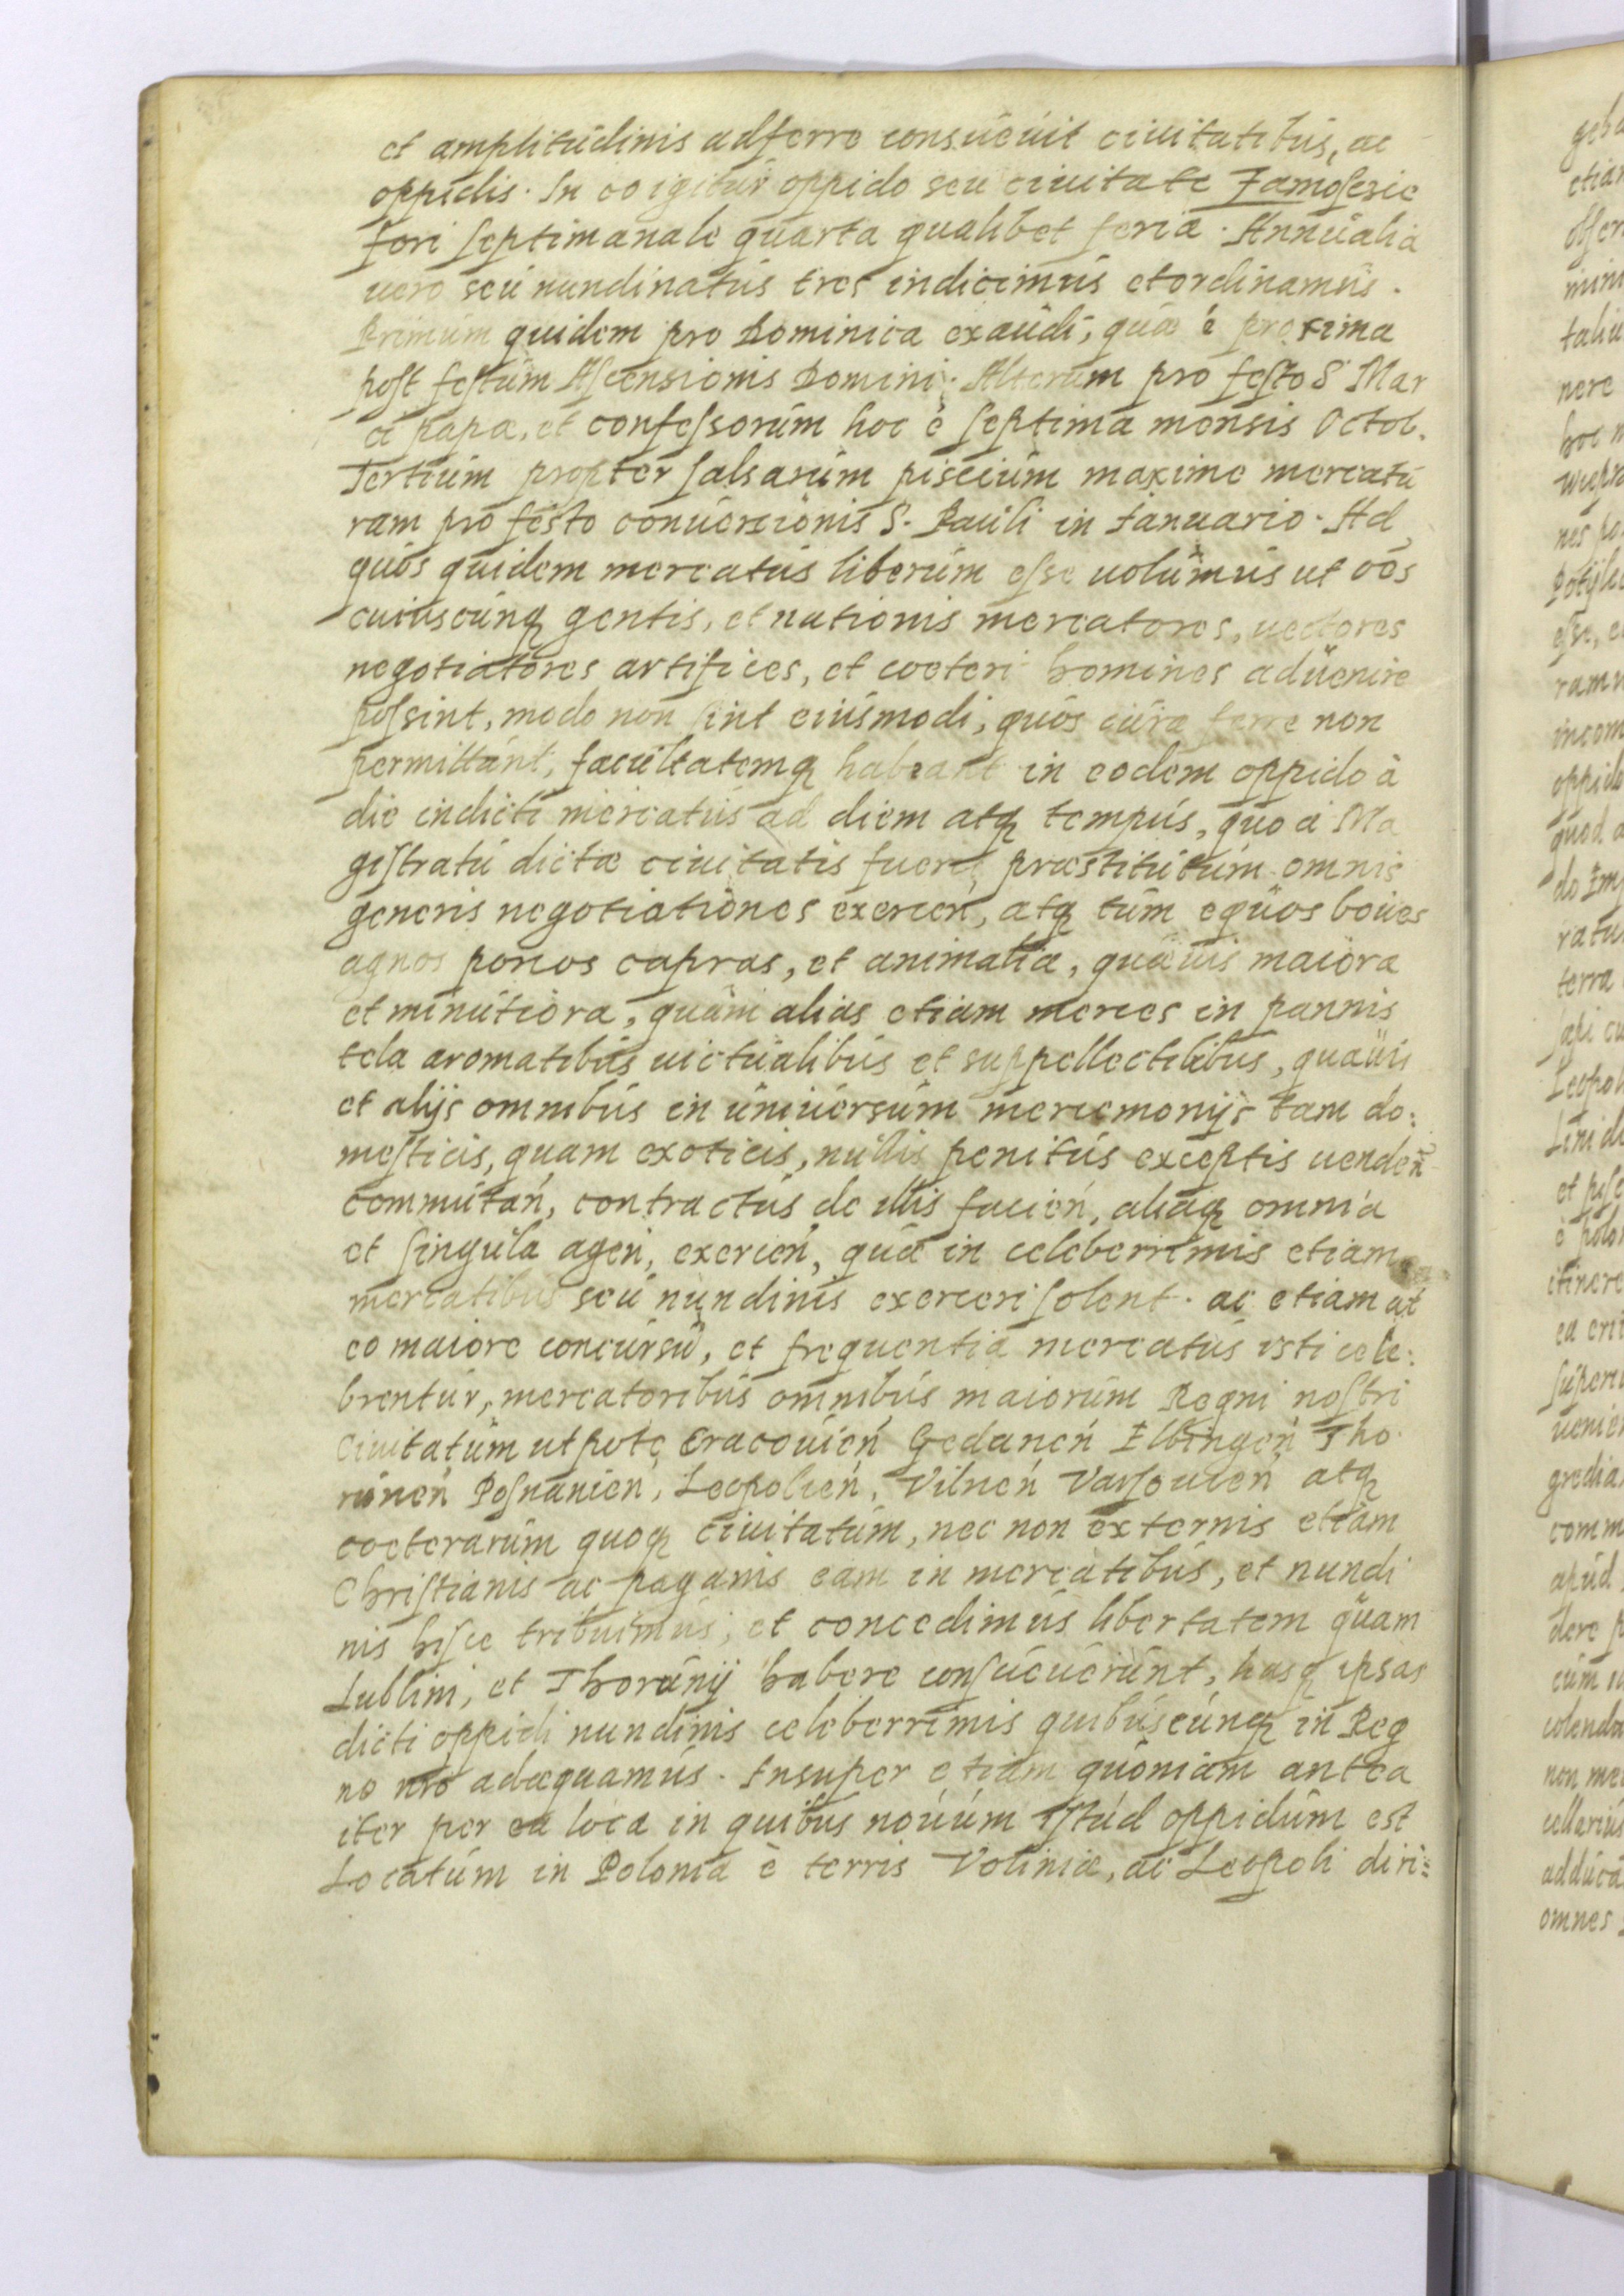 et amplitudinis adferre consueuit ciuitatibus, ac
oppidis. In eo igitur oppido seu ciuitate Zamoscie
fori septimanale quarta qualibet feria. Annualia
uero seu nundinatus tres indicimus et ordinamus.
Primum quidem pro Dominica exaudi, quæ ẽ proxima
post festum Ascensionis Domini. Alterum pro festo S Mar
ci papæ, et confessorum hoc ẽ septima mensis Octob.
Tertium propter salsarum pisccium maxime mercatu
ram pro festo conuersionis S. Pauli in Januario. Ad
quos quidem mercatus liberum esse uolumus ut oẽs
cuiuscunq gentis, et nationis mercatores, uectores
negotiatores artifices, et coeteri homines aduenire
possint, modo non sint eiusmodi, quos iura ferre non
permittant, facultatemq habeant in eodem oppido à
die indicti mercatus ad diem atq tempus, quo à Ma
gistratu dictæ ciuitatis fuerit præstitutum omnis
generis negotiationes exercen, atq tum equos boues
agnos porcos capras, et animalia, quæuis maiora
et minutiora, quàm alias etiam merces in pannis
tela aromatibus uictualibus et suppellectilibus, quæuis
et alijs omnibus in uniuersum mercemonijs tam do:
mesticis, quam exoticis, nullis penitus exceptis uenden̄
commutan̄, contractus de illis facien̄, aliaq omnia
et singula agen̄, exercen̄, quæ in celeberrimis etiam
mercatibus seu nundinis exerceri solent. ac etiam ut
eo maiore concursu, et frequentia mercatus isti cele:
brentur, mercatoribus omnibus maiorum Regni nostri
Ciuitatum utpote Cracouien̄ Gedanen̄ Elbingen̄ Tho
runen̄ Posnanien̄, Leopolien̄, Vilnen̄ Varsouien̄ atq
coeterarum quoq ciuitatum, nec non externis etiam
Christianis ac paganis eam in mercatibus, et nundi
nis hisce tribuimus, et concedimus libertatem quam
Lublini, et Thorunij habere consueuerunt, hasq ipsas
dicti oppidi nundinis celeberrimis quibuscunq in Reg
no nr̃o adæquamus. Insuper etiam quoniam antea
iter per ea loca in quibus nouum istud oppidum est
Locatum in Polonia è terris Voliniæ, ac Leopoli diri=